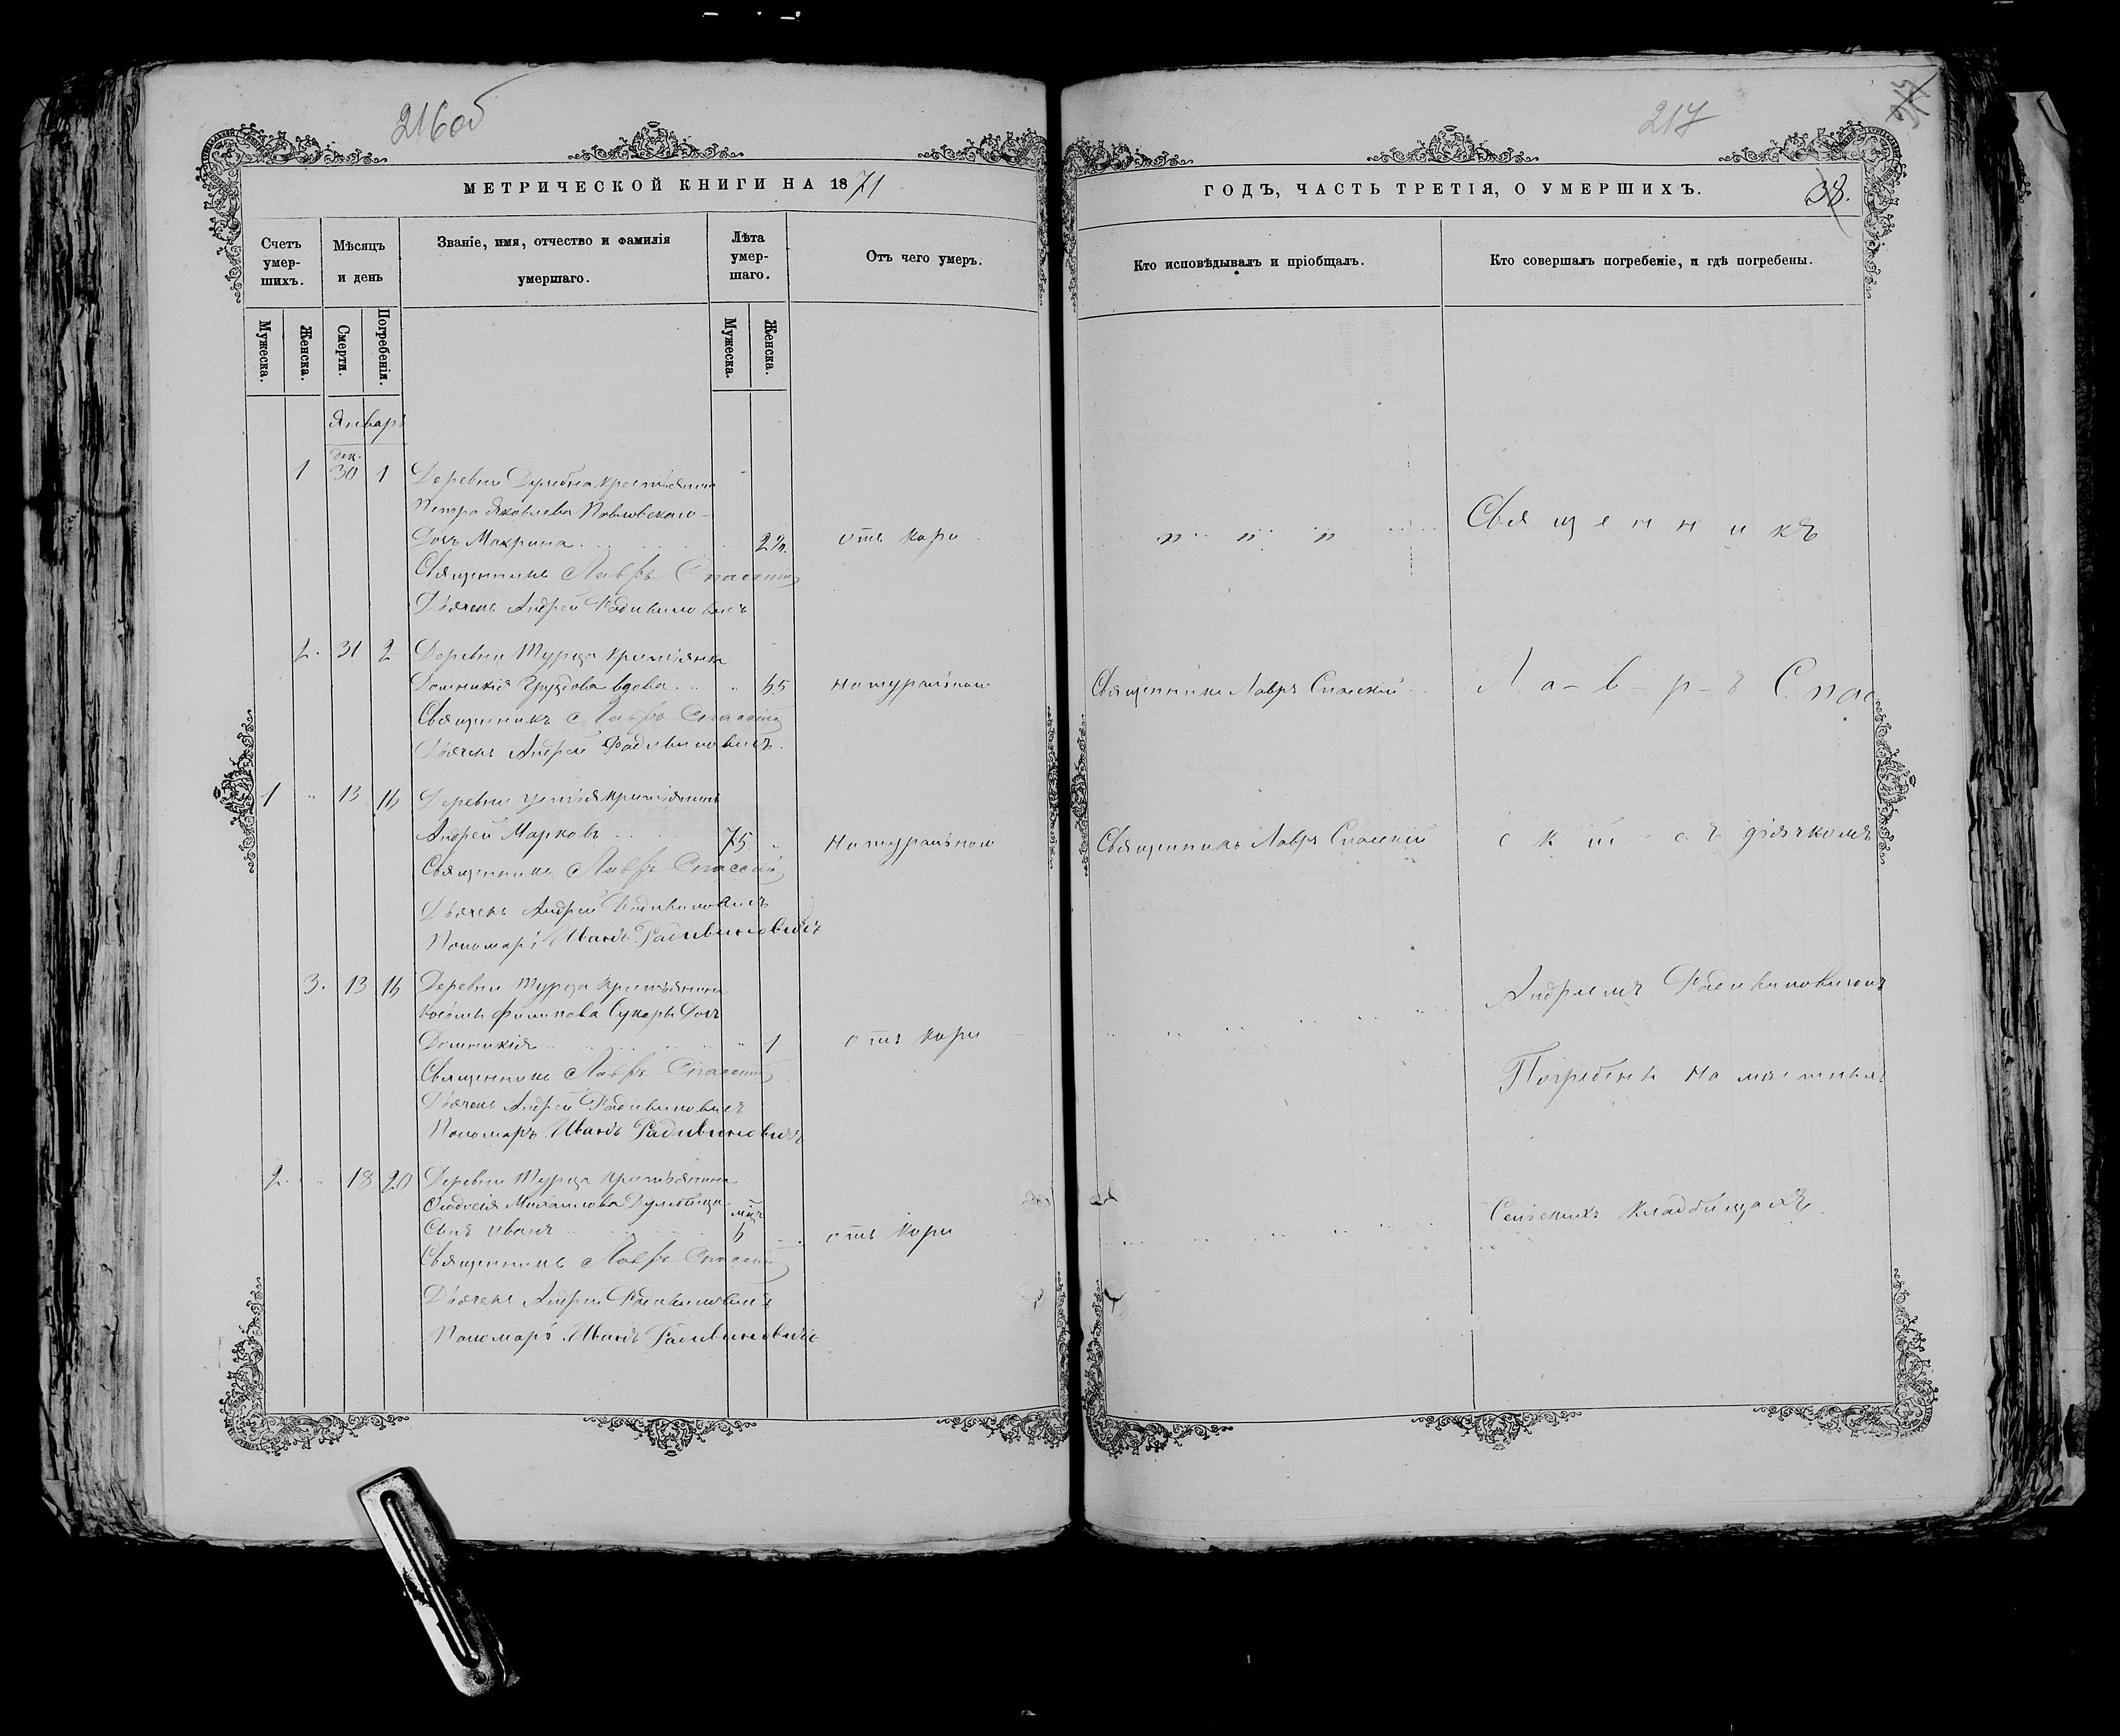 216об
МЕТРИЧЕСКОЙ КНИГИ НА 1871
Счетъ умер-шихъ.
Мѣсяцъ и день
Званіе, имя, отчество и фамилія умершаго.
Лѣта умер-шаго.
Отъ чего умеръ.
Мужеска.
Женска.
Смерти.
Погребенія.
Мужеска.
Женска.
Январь
дек.
1 30 1 Деревни крестьянина
Петра Яковлева Павловскаго
Дочь Макрина 2½ отъ кори
Священникъ Лавръ Спасскій
Дьячекъ Андрей Радивиновичъ
2. 31 2 Деревни Турца крестьянка
Домникія вдова 65 натуральною
Священникъ Лавръ Спасскій
Дьячекъ Андрей Радивиновичъ.
1 13 16 Деревни крестьянинъ
Андрей Марковъ 75 натуральною
Священникъ Лавръ Спасскій
Дьячекъ Андрей Радивиновичъ
Пономарь Иванъ Радивиновичъ
3. 13 16 Деревни Турца крестьянина
Филипова Сукаръ дочь
Домникія 1 отъ кори
Священникъ Лавръ Спасскій
Дьячекъ Андрей Радивиновичъ
Пономарь Иванъ Радивиновичъ
2. 18 20 Деревни Турца крестьянина
Феодосія Михайлова
Сынъ Иванъ 6 отъ кори
Священникъ Лавръ Спасскій
Дьячекъ Андрей Радивиновичъ
Пономарь Иванъ Радивиновичъ
217
ГОДЪ, ЧАСТЬ ТРЕТІЯ, О УМЕРШИХЪ.
38.
Кто исповѣдывалъ и пріобщалъ.
Кто совершалъ погребеніе, и гдѣ погребены.
Священникъ
Священникъ Лавръ Спаскій Ла-в-р-ъ Спас
Священникъ Лавръ Спаскій скій съ дьячкомъ
Андреемъ Радивиновичомъ
Погребены на мѣстныхъ
Сельскихъ кладбищахъ.